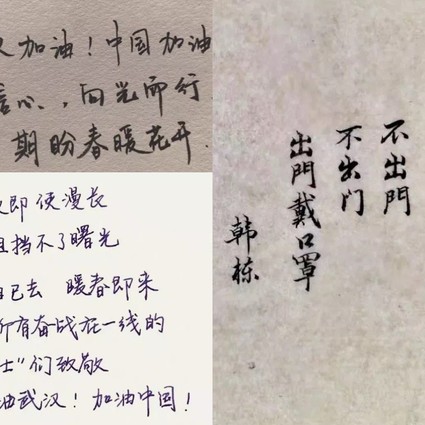 加油！中国加油
心，向光而行
期盼春暖花开.
即使漫长
挡不了曙光
已去 暖春即来
所有奋战在一线的
士”们致敬
油武汉！加油中国！
不出門
不出门
出門戴口罩
韩栋